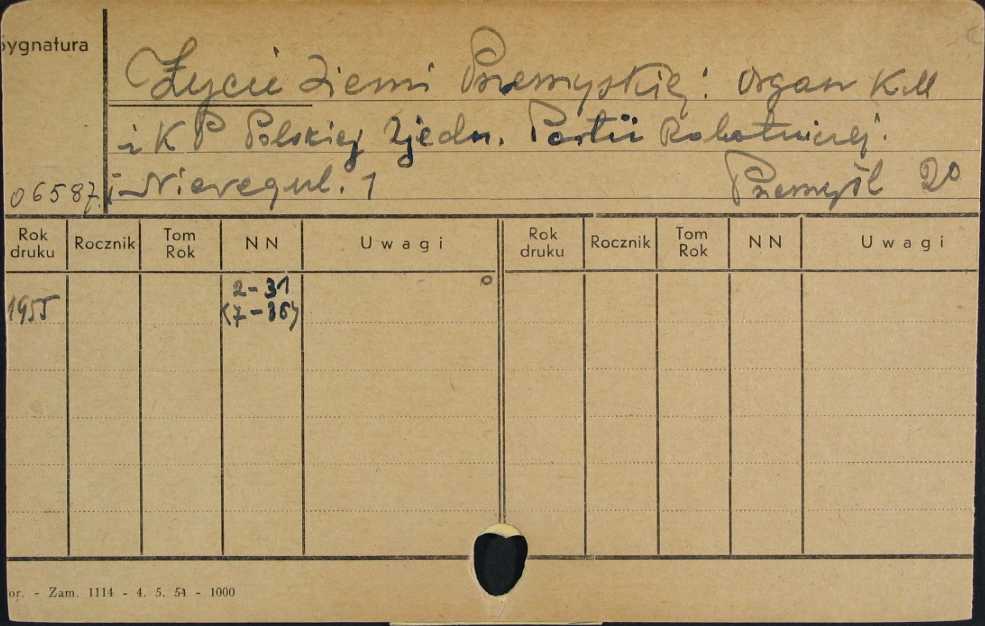 ygnatura
Życie Ziemi Przemyskiej: Organ KM
i KP Polskiej Zjedn. Partii Robotniczej.
06587. Nieregul. 1 Przemyśl 20
Rok druku Rocznik Tom Rok NN Uwagi Rok druku Rocznik Tom Rok NN Uwagi
2-31
1955 (7-36)
or. - Zam. 1114 - 4. 5. 54 - 1000